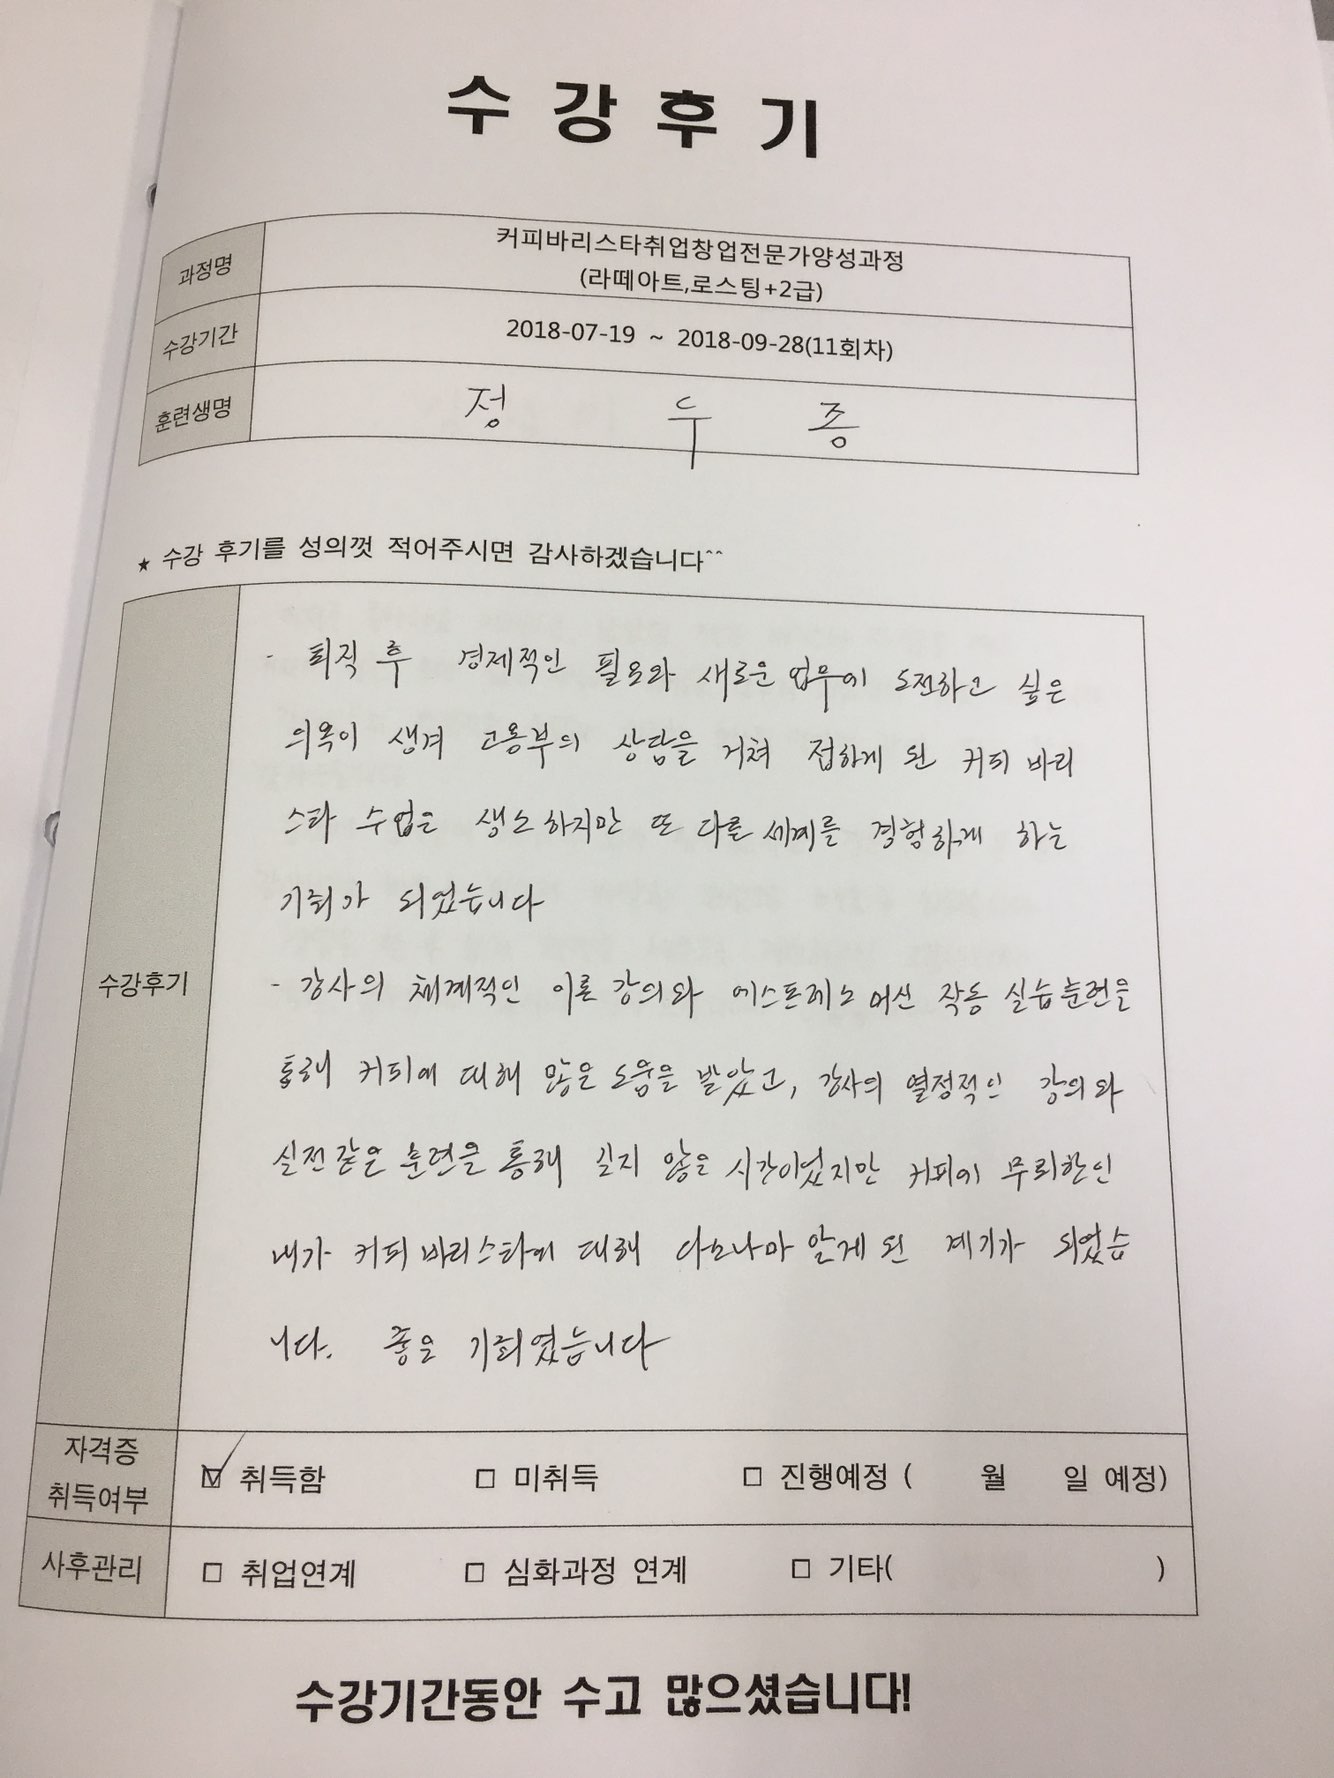 수 강 후 기
과정명
커피바리스타취업창업전문가양성과정
(라떼아트,로스팅+2급)
수강기간
2018-07-19 ~ 2018-09-28(11회차)
훈련생명
정 두 종
★ 수강 후기를 성의껏 적어주시면 감사하겠습니다^^
수강후기
- 퇴직 후 경제적인 필요와 새로운 업무에 도전하고 싶은
의욕이 생겨 고용부의 상담을 거쳐 접하게 된 커피 바리
스타 수업은 생소하지만 또 다른 세계를 경험하게 하는
기회가 되었습니다
- 강사의 체계적인 이론 강의와 에스프레소 머신 작동 실습훈련을
통해 커피에 대해 많은 도움을 받았고, 강사의 열정적인 강의와
실전같은 훈련을 통해 길지 않은 시간이었지만 커피에 무뢰한인
내가 커피 바리스타에 대해 다소나마 알게 된 계기가 되었습
니다. 좋은 기회였습니다
자격증
취득여부
☑ 취득함 □ 미취득 □ 진행예정 ( 월 일 예정)
사후관리
□ 취업연계 □ 심화과정 연계 □ 기타( )
수강기간동안 수고 많으셨습니다!